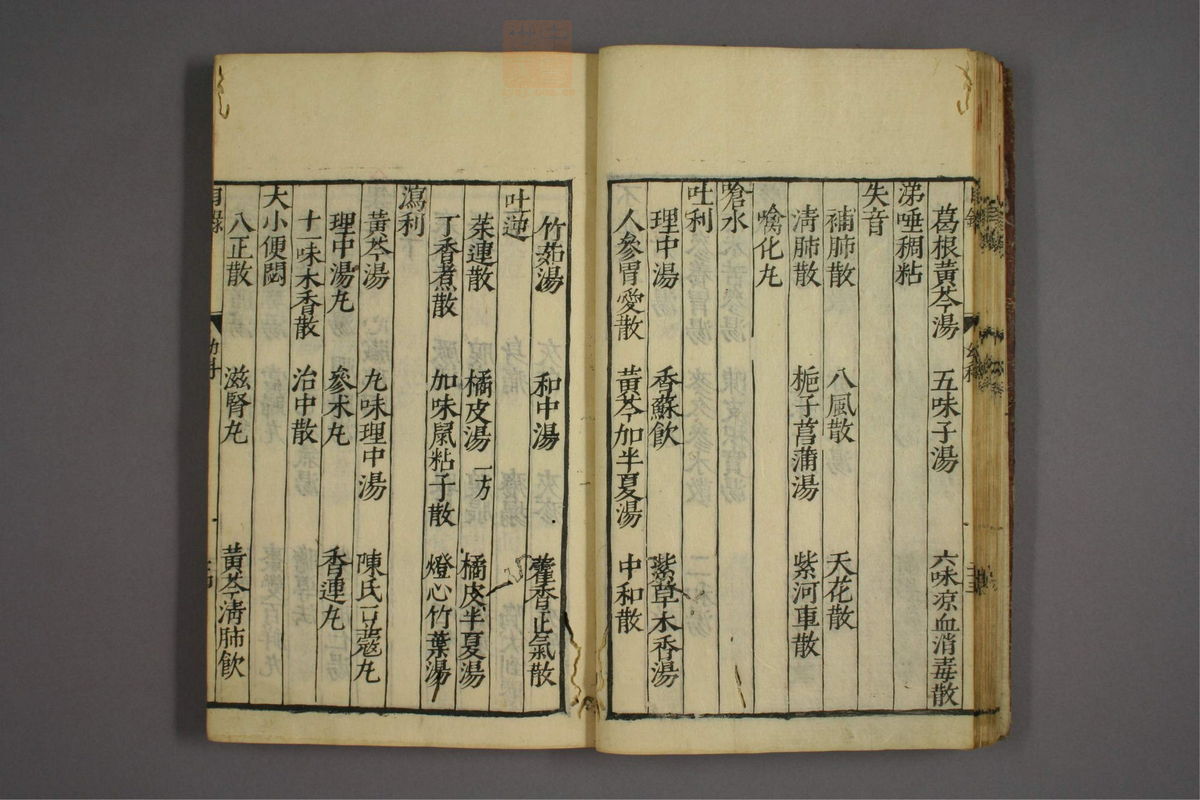 葛根黃芩湯　五味子湯　六味凉血消毒散
涕唾稠粘
失音
補肺散　八風散　天花散
淸肺散　梔子菖蒲湯　紫河車散
噙化丸
嗆水
吐利
理中湯　香蘇飮　紫草木香湯
人參胃愛散　黃芩加半夏湯　中和散
竹茹湯　和中湯　藿香正氣散
吐逆
茱連散　橘皮湯一方　橘皮半夏湯
丁香煮散　加味鼠粘子散　燈心竹葉湯
瀉利
黃芩湯　九味理中湯　陳氏豆蔻丸
理中湯丸　參朮丸　香連丸
十一味木香散　治中散
大小便閟
八正散　滋腎丸　黃芩淸肺飮
目錄